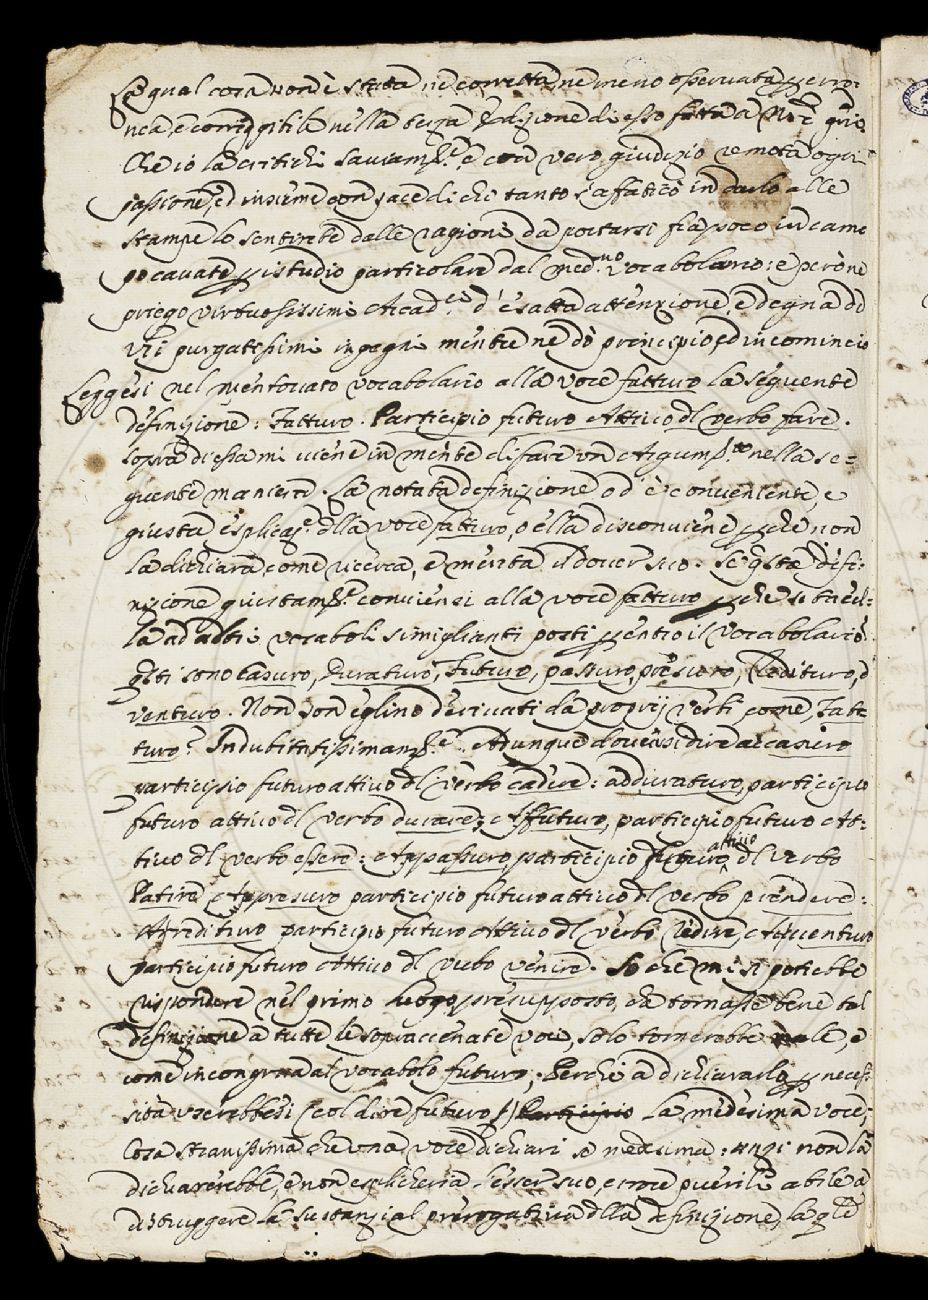 La qual cosa non è stata, nè corretta, ne meno osservata p erro:
nea, e nella terza Edizione di esso fatta
Che io la critichi saviam.te, e con vero giudizio remota ogni
passione, ed insieme con pace di chi tanto s'affaticò in darlo alle
stampe lo sentirete dalle ragioni da portarsi fra poco in came
po cavate p istudio particolare dal med.mo vocabolario: e però ne
priego virtuosissimi Acad.ci d'esatta attenzione, e degna di
Vri purgatissimi ingegni mentre ne dò principio, ed incomincio
Leggesi nel mentovato vocabolario alla voce fatturo la seguente
definizione: Fatturo. Participio futuro Attivo dl verbo fare.
sopra di essa mi viene in mente di fare un Argum.to nella se=
guente maniera. La notata definizione o d' è conveniente, e
giusta esplicaz.e dlla voce fatturo, o ella disconviene p che non
la dichiara, come ricerca, e merita il dover suo. Se qsta defi:
nizione giustam.te conviensi alla voce fatturo p che si trae el:
la ad altri vocaboli simiglianti posti p entro il vocabolario.
qsti sono casuro, Duraturo, Futuro, passuro, presuro, Redituro, e
venturo. Non son eglino derivati da proprij verbi come, Fat
turo? Indubitatissimam.te. Adunque doversi dire a casuro
participio futuro attivo dl verbo cadere: a duraturo, participio
futuro attivo dl verbo durare; e Affuturo, participio futuro At:
tivo dl verbo essere: e Appassuro, participio futuro attivo dl verbo
Patire, e Appresuro participio futuro attivo dl verbo prendere:
Arredituro participio futuro Attivo dl verbo redire, e Aventuro
participio futuro Attivo dl verbo venire. So che mi si potrebbe
rispondere nel primo luogo, presupposto, che tornasse bene tal
definizione a tutte le sopraccenate voci, solo tornerebbe male, e
come incongrua al vocabolo futuro; Perchè a dichiararlo p neces:
sità userebbesi (col dire futuro p) Participio la medesima voce;
Cosa stranissima che una voce dichiari se medesima: anzi non la
dichiarerebbe, e non esplicheria l'esser suo, errore puerile abile a
distruggere la sustanzial prerogativa dlla definizione, la qle